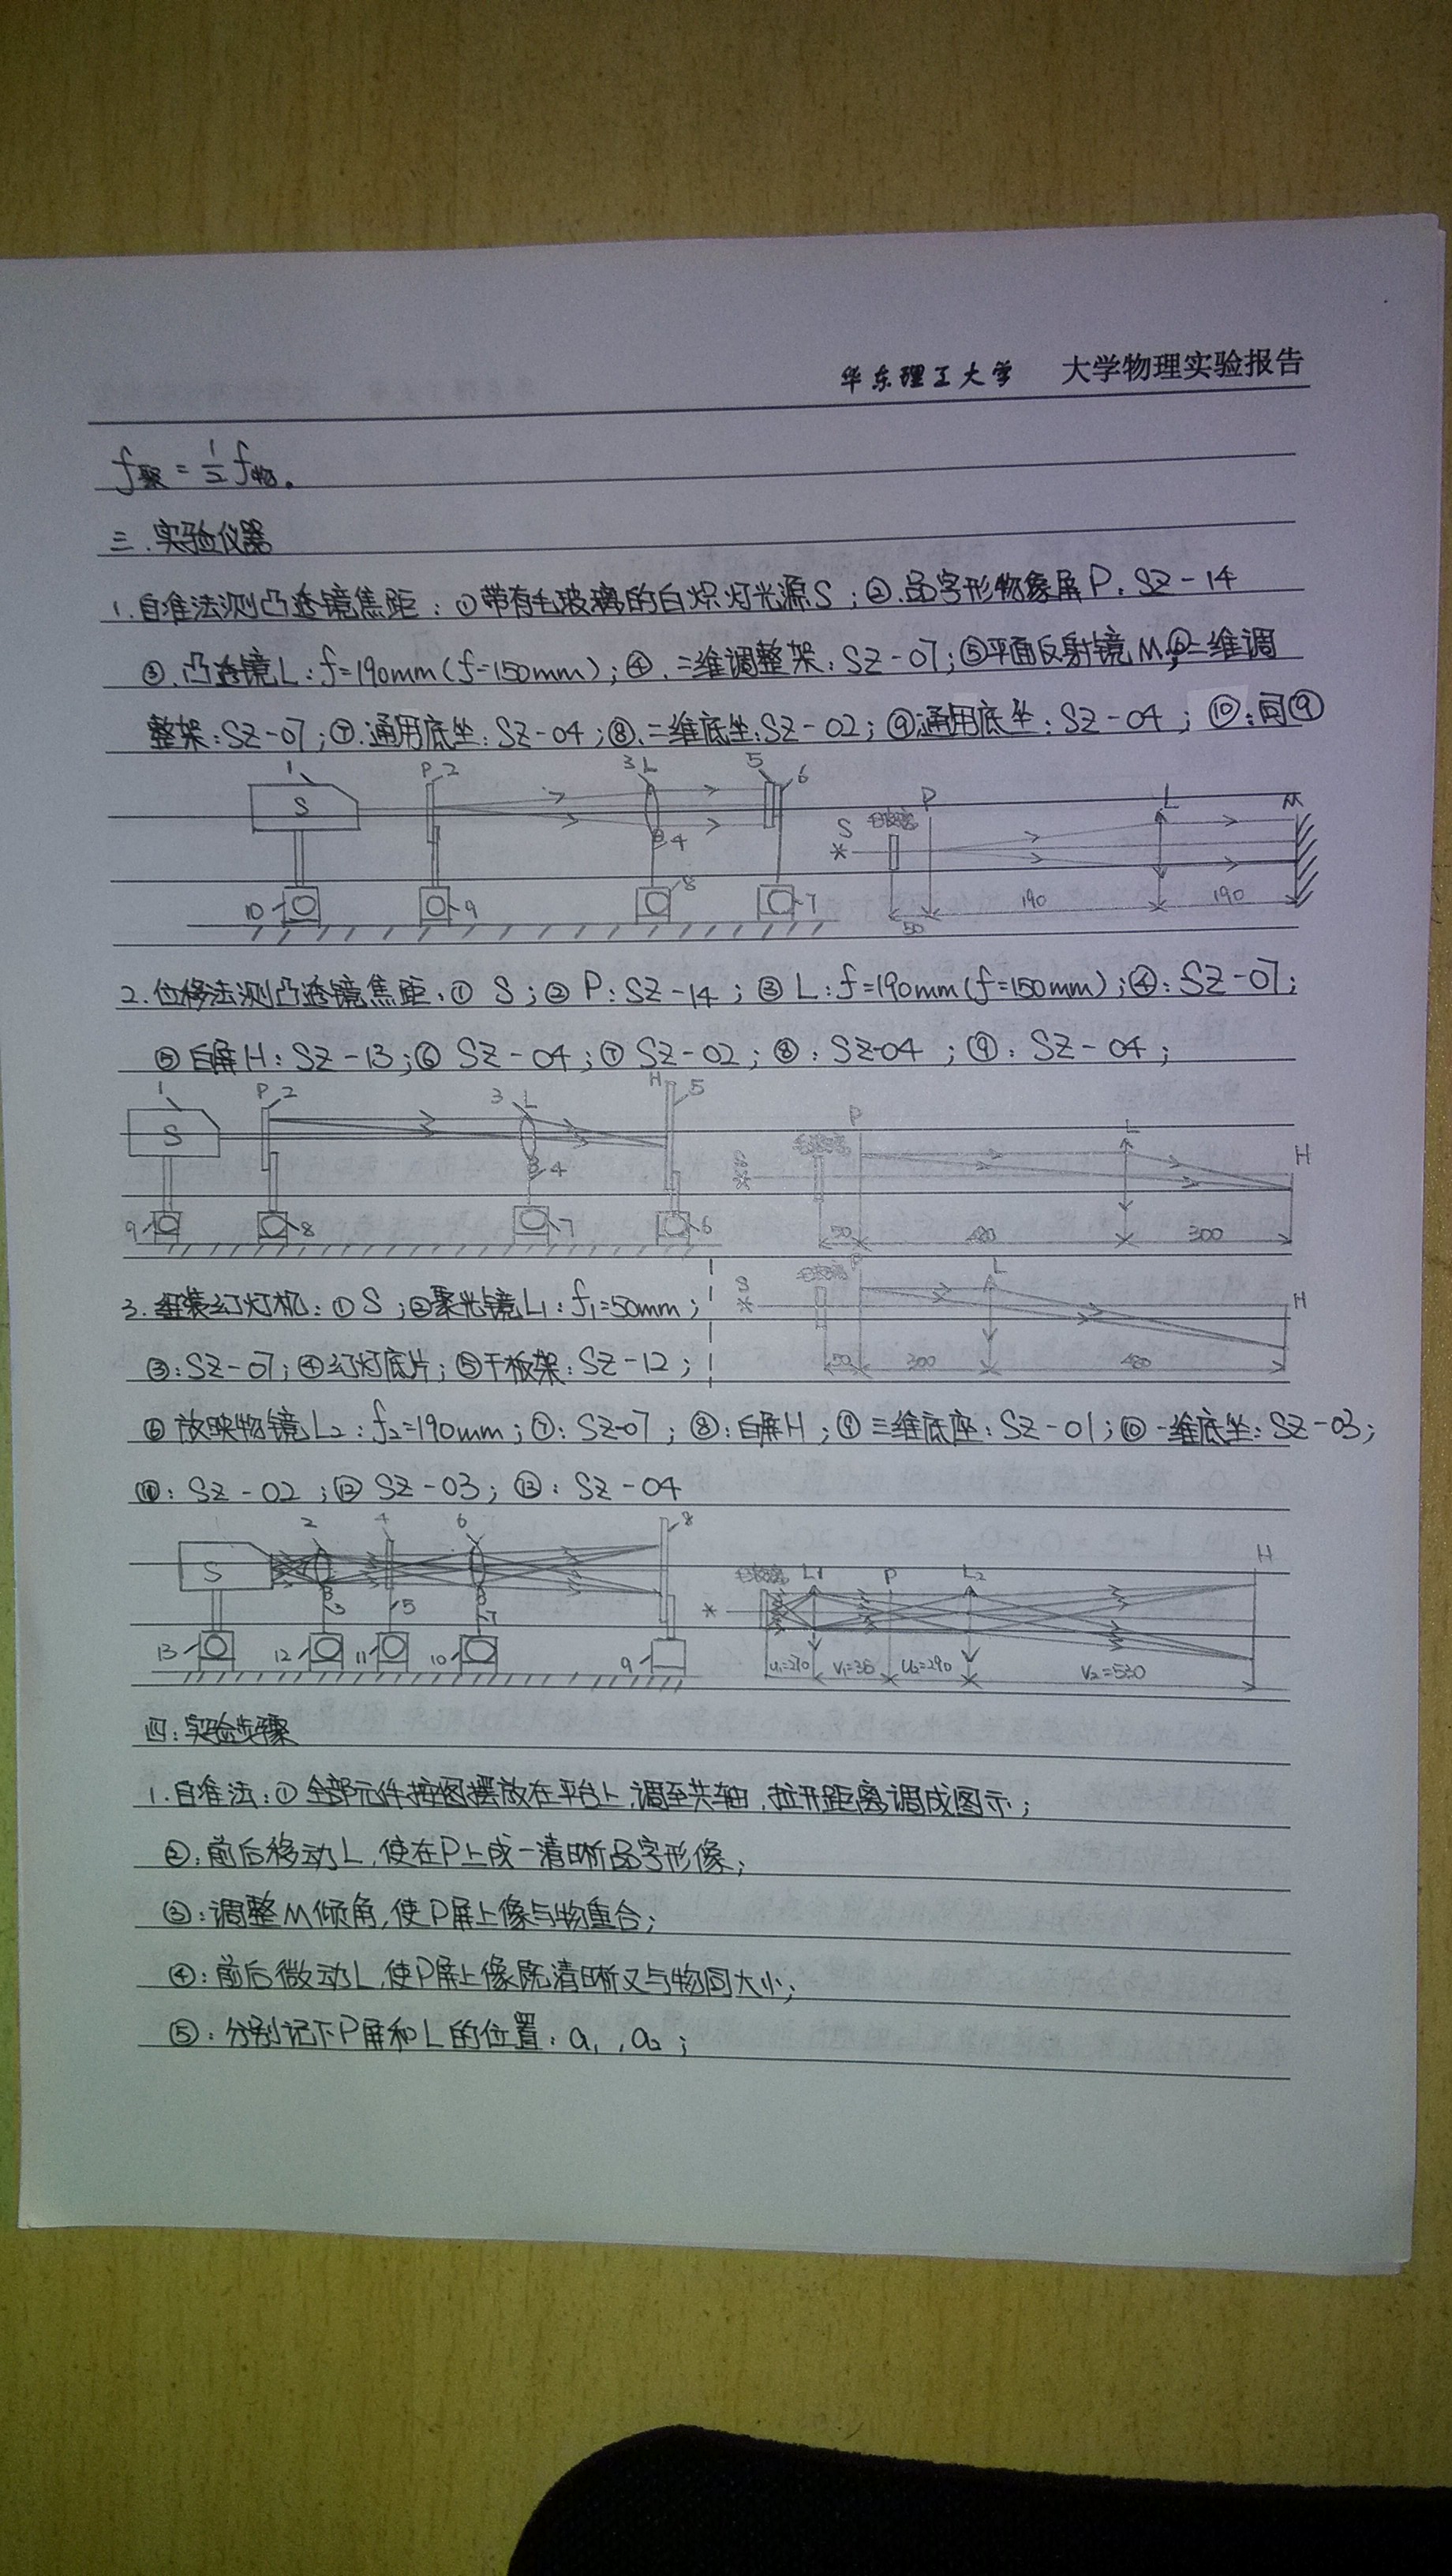 华东理工大学 大学物理实验报告
f聚 = 1/2 f物。
三.实验仪器
1.自准法测凸透镜焦距：①带有毛玻璃的白炽灯光源S；②.品字形物象屏P：SZ-14
③.凸透镜L：f=190mm(f=150mm)；④.二维调整架：SZ-07；⑤平面反射镜M；⑥二维调
整架：SZ-07；⑦.通用底坐：SZ-04；⑧.二维底坐：SZ-02；⑨通用底坐：SZ-04；⑩：同⑨
1 P 2 3 L 5 6
S
4
10 9 8 7
S 毛玻璃 P L M
50 190 190
2.位移法测凸透镜焦距.① S；② P：SZ-14；③ L：f=190mm(f=150mm)；④：SZ-07；
⑤白屏H：SZ-13；⑥ SZ-04；⑦ SZ-02；⑧：SZ-04；⑨：SZ-04；
1 P 2 3 L H 5
S
4
9 8 7 6
S 毛玻璃 P L H
50 480 300
3.组装幻灯机：① S；②聚光镜L1：f1=50mm；
③：SZ-07；④幻灯底片；⑤干板架：SZ-12；
S 毛玻璃 P L H
50 300 480
⑥放映物镜L2：f2=190mm；⑦：SZ-07；⑧：白屏H；⑨三维底座：SZ-01；⑩一维底坐：SZ-03；
⑪：SZ-02；⑫ SZ-03；⑬：SZ-04
2 4 6 8
S
3 5 7
13 12 11 10 9
毛玻璃 L1 P L2 H
V1=35 U2=290 V2=530
四：实验步骤
1.自准法：①全部元件按图摆放在平台上,调至共轴,拉开距离调成图示；
②：前后移动L,使在P上成一清晰品字形像；
③：调整M倾角,使P屏上像与物重合；
④：前后微动L,使P屏上像既清晰又与物同大小；
⑤：分别记下P屏和L的位置：a1,a2；